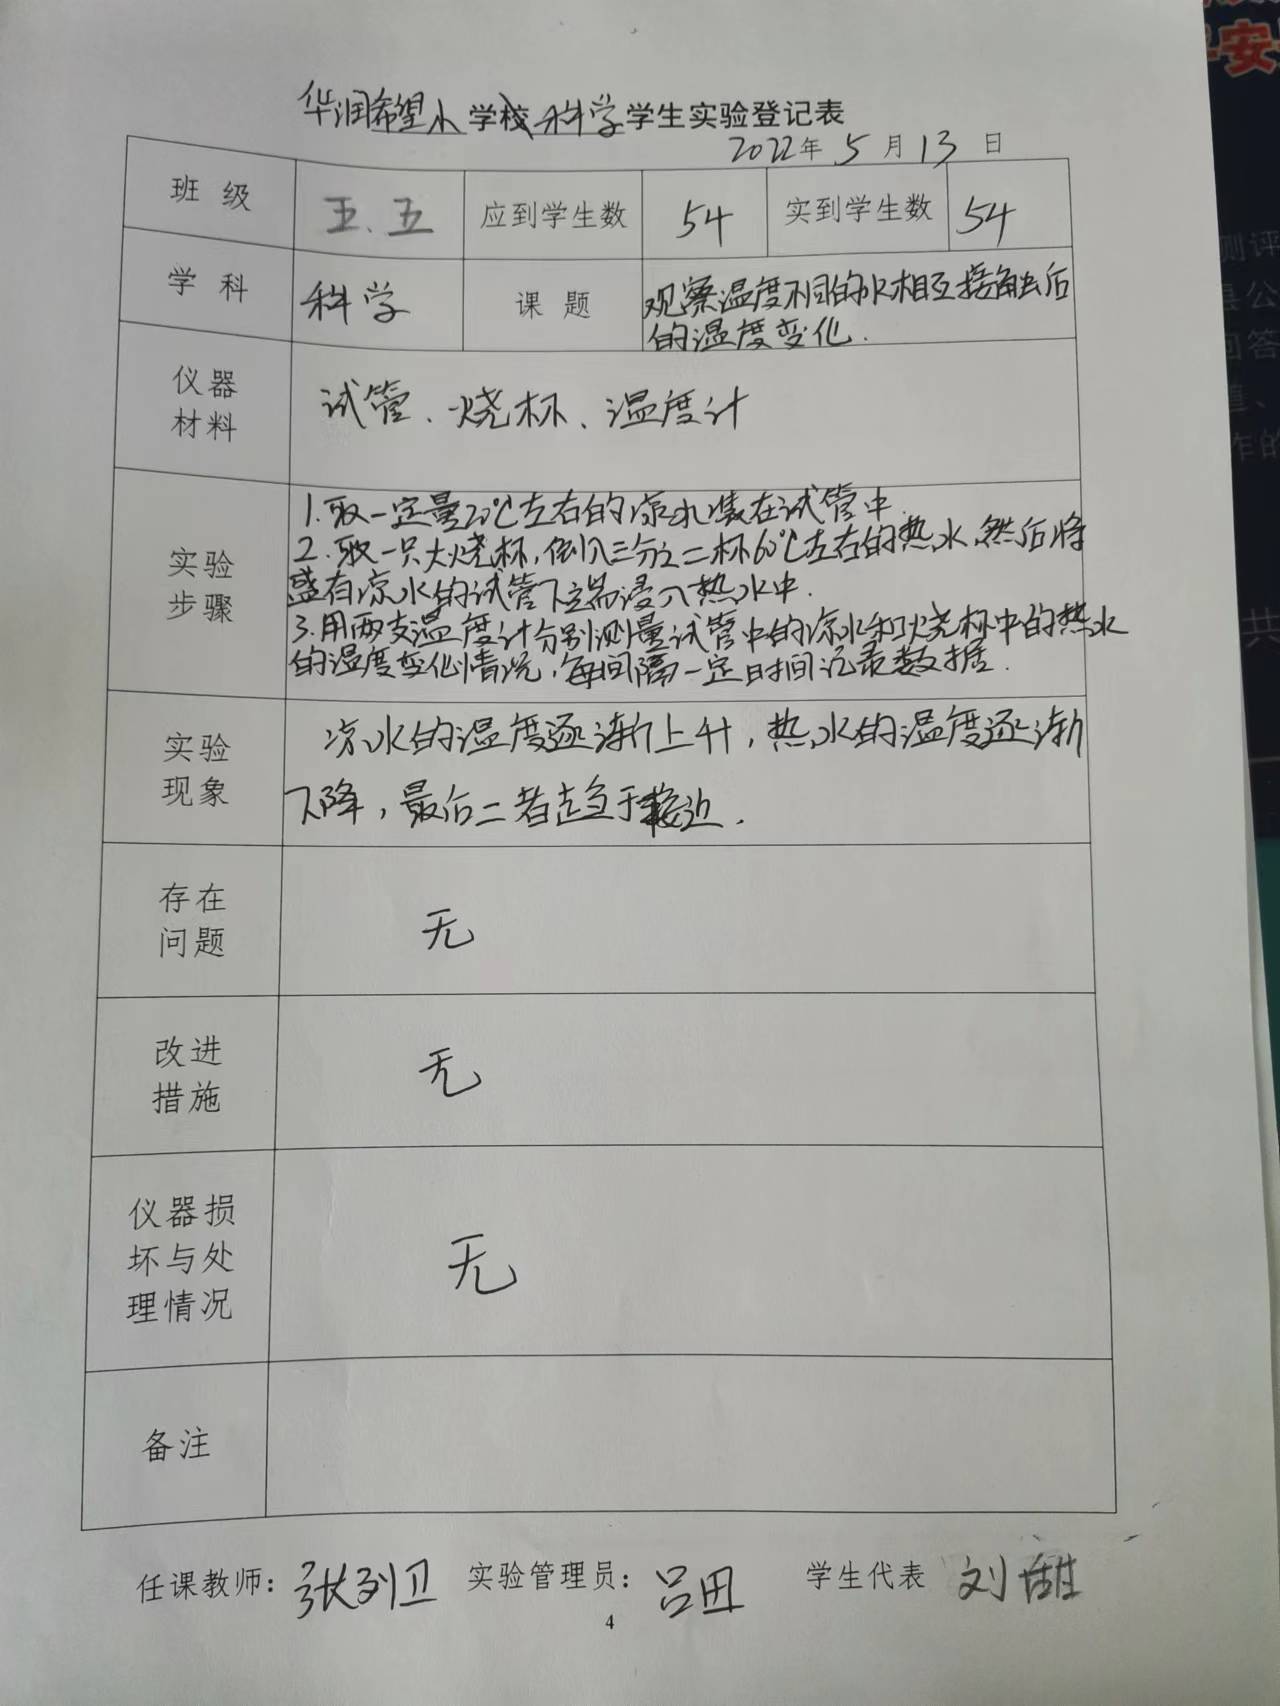 华润希望小学校科学学生实验登记表
2022年5月13日
班级 五.五 应到学生数 54 实到学生数 54
学科 科学 课题 观察温度不同的水相互接触后
的温度变化.
仪器
材料
试管、烧杯、温度计
实验
步骤
1.取一定量20℃左右的凉水装在试管中.
2.取一只大烧杯,倒入三分之二杯60℃左右的热水,然后将
盛有凉水的试管下端浸入热水中.
3.用两支温度计分别测量试管中的凉水和烧杯中的热水
的温度变化情况,每间隔一定时间记录数据.
实验
现象
凉水的温度逐渐上升,热水的温度逐渐
下降,最后二者趋于接近.
存在
问题
无
改进
措施
无
仪器损
坏与处
理情况
无
备注
任课教师: 张列卫 实验管理员: 吕田 学生代表 刘甜
4
安
测评
县公
回答
作的
共